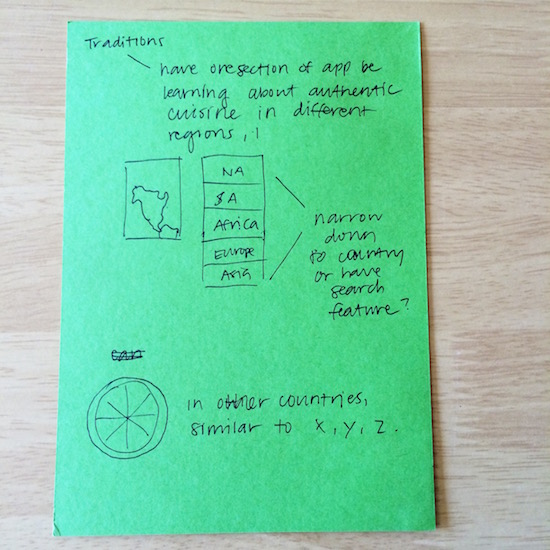 Traditions
have one section of app be
learning about authentic
cuisine in different
regions,
NA
SA
Africa
Europe
Asia
narrow
down
to country
or have
search
feature?
in other countries,
similar to x, y, z.